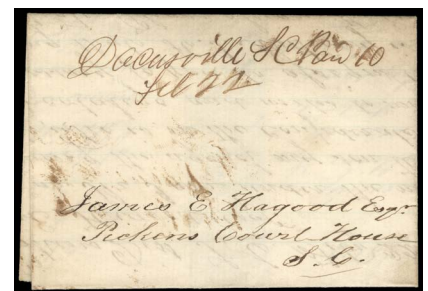 Dacusville SC Paid 10
Feb 22
James E Hagood Esqr.
Pickens Court House
S. C.